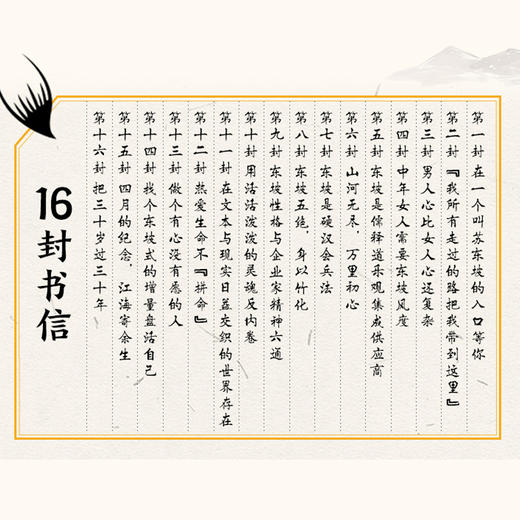 第一封 在一个叫苏东坡的入口等你
第二封 『我所有走过的路把我带到这里』
第三封 男人心比女人心还复杂
第四封 中年女人需要东坡风度
第五封 东坡是儒释道乐观集成供应商
第六封 山河无尽，万里初心
第七封 东坡是硬汉会兵法
第八封 东坡五绝，身以竹化
第九封 东坡性格与企业家精神六通
第十封 用活活泼泼的灵魂反内卷
第十一封 在文本与现实日益交织的世界存在
第十二封 热爱生命不『拼命』
第十三封 做个有心没有愚的人
第十四封 找个东坡式的增量盘活自己
第十五封 四月的纪念，江海寄余生
第十六封 把三十岁过三十年
16封书信